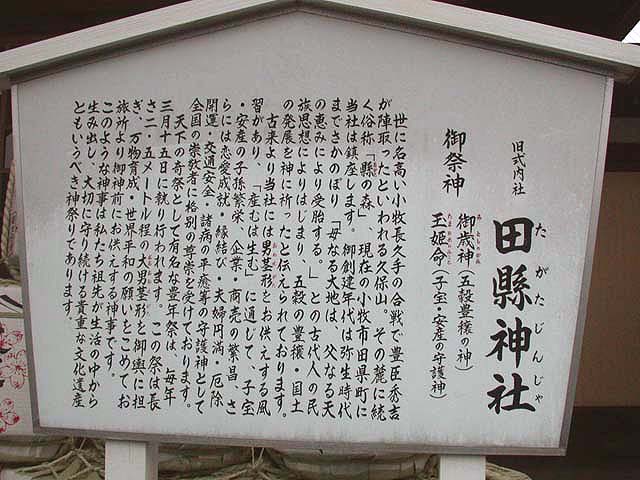 旧式内社
たがたじんじゃ
田縣神社
御祭神
みとしのかみ
御歳神(五穀豊穣の神)
たまひめのみこと
玉姫命(子宝・安産の守護神)
世に名高い小牧長久手の合戦で豊臣秀吉
が陣取ったといわれる久保山。その麓に続
く俗称「縣の森」、現在の小牧市田県町に
当社は鎮座します。御創建年代は弥生時代
までさかのぼり「母なる大地は、父なる天
の恵みにより受胎する。」との古代人の民
族思想によりはじまり、五穀の豊穣・国土
の発展を神に祈ったと伝えられております。
古来より当社には男茎形をお供えする風
習があり、「産むは生む」に通じて、子宝
・安産の子孫繁栄、企業・商売の繁昌、さ
らには恋愛成就・縁結び・夫婦円満・厄除
開運・交通安全・諸病の平癒等の守護神として
全国の崇敬者に格別の尊崇を受けております。
天下の奇祭として有名な豊年祭は、毎年
三月十五日に執り行われます。この祭は長
さ二・五メートル程の大男茎形を御輿に担
ぎ、万物育成・世界平和の願いをこめてお
旅所より御神前にお供えする神事です。
このような神事は私たち祖先が生活の中から
生み出し、大切に守り続ける貴重な文化遺産
ともいうべき神祭りであります。